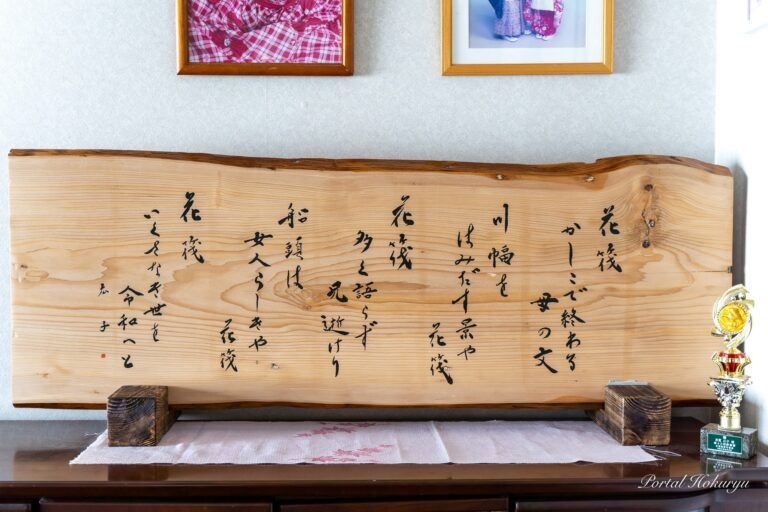 花筏
かしこで終わる
母の文
川幅を
はみだす景や
花筏
花筏
多く語らず
兄逝けり
船頭は
女人らしきや
花筏
花筏
いくさなき世を
令和へと
Portal Hokuryu